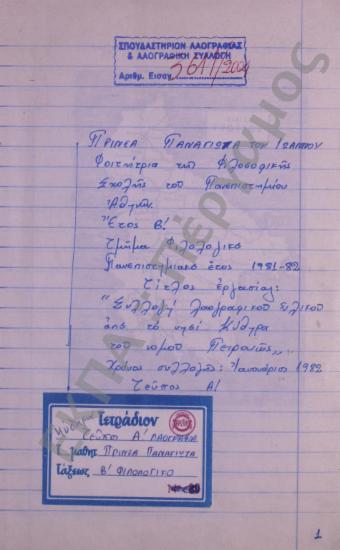 ΣΠΟΥΔΑΣΤΗΡΙΟΝ ΛΑΟΓΡΑΦΙΑΣ
& ΛΑΟΓΡΑΦΙΚΗ ΣΥΛΛΟΓΗ
Αριθμ. Εισαγ.
ΠΡΙΝΕΑ ΠΑΝΑΓΙΩΤΑ ΤΟΥ ΙΩΑΝΝΟΥ
Φοιτήτρια της Φιλοσοφικής
Σχολής του Πανεπιστημίου
Αθηνών.
Ἔτος Β!
Τμήμα Φιλολογικό
Πανεπιστημιακό ἔτος 1981-82
Τίτλος ἐργασίας:
"Συλλογή λαογραφικού ὑλικού
ἀπό τό νησί Κύθηρα
του νομού Πειραιώς"
Χρόνος συλλογής: Ἰανουάριος 1982
Τεύχος Α!
Τετράδιον
Τεύχος Α' ΛΑΟΓΡΑΦΙΑ
μαθητ ΠΡΙΝΕΑ ΠΑΝΑΓΙΩΤΑ
Τάξεως Β' ΦΙΛΟΛΟΓΙΚΟ
1
ΕΚΠΑ - Πέργαμος